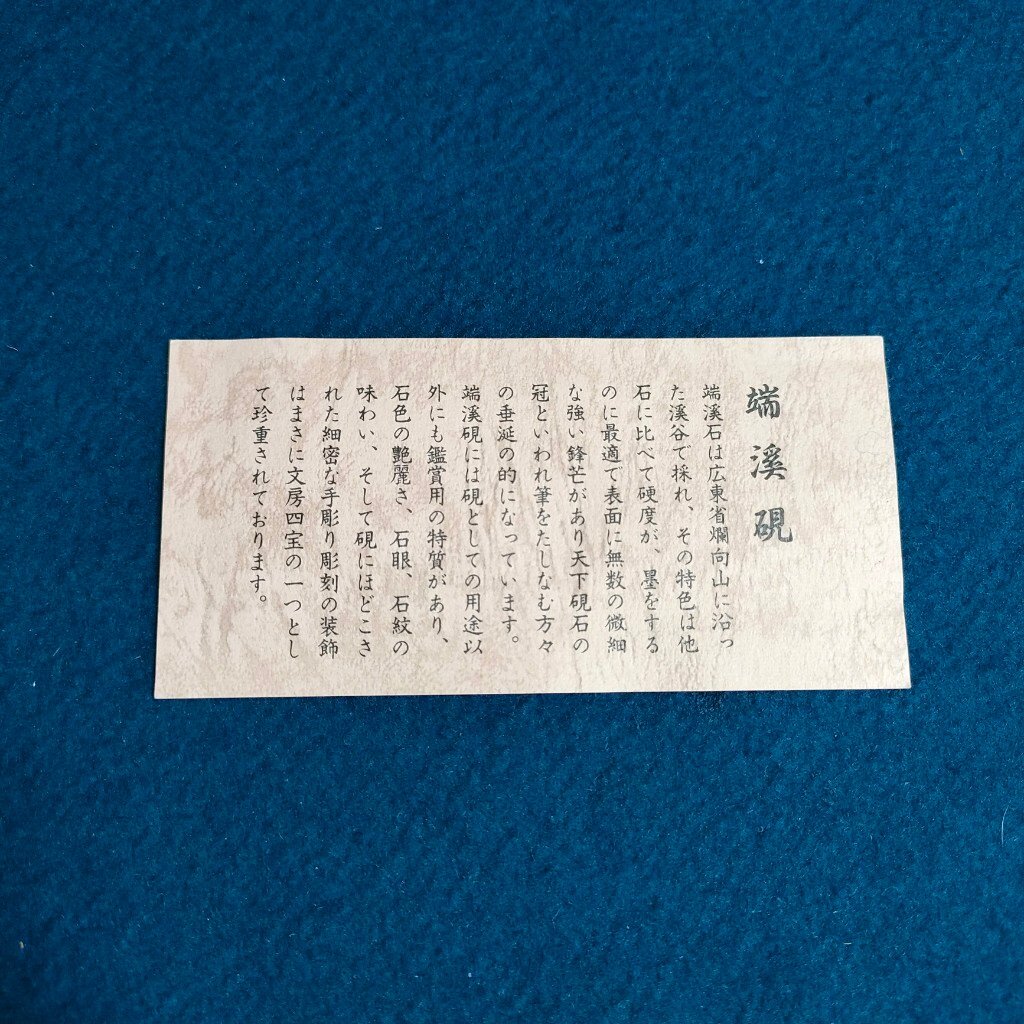 端溪硯
端溪石は広東省爛向山に浴っ
た溪谷で採れ、その特色は他
石に比べて硬度が、墨をする
のに最適で表面に無数の微細
な強い鋒芒があり天下硯石の
冠といわれ筆をたしなむ方々
の垂涎の的になっています。
端溪硯には硯としての用途以
外にも鑑賞用の特質があり、
石色の艶麗さ、石眼、石紋の
味わい、そして硯にほどこさ
れた細密な手彫り彫刻の装飾
はまさに文房四宝の一つとし
て珍重されております。